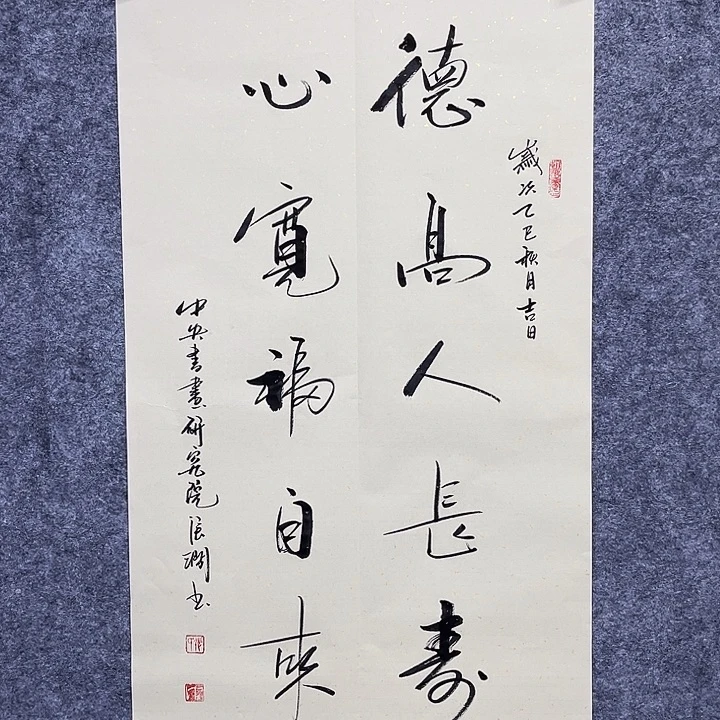 歲次乙巳秋月吉日
德高人長壽
心寬福自來
中央書畫研究院張潤书